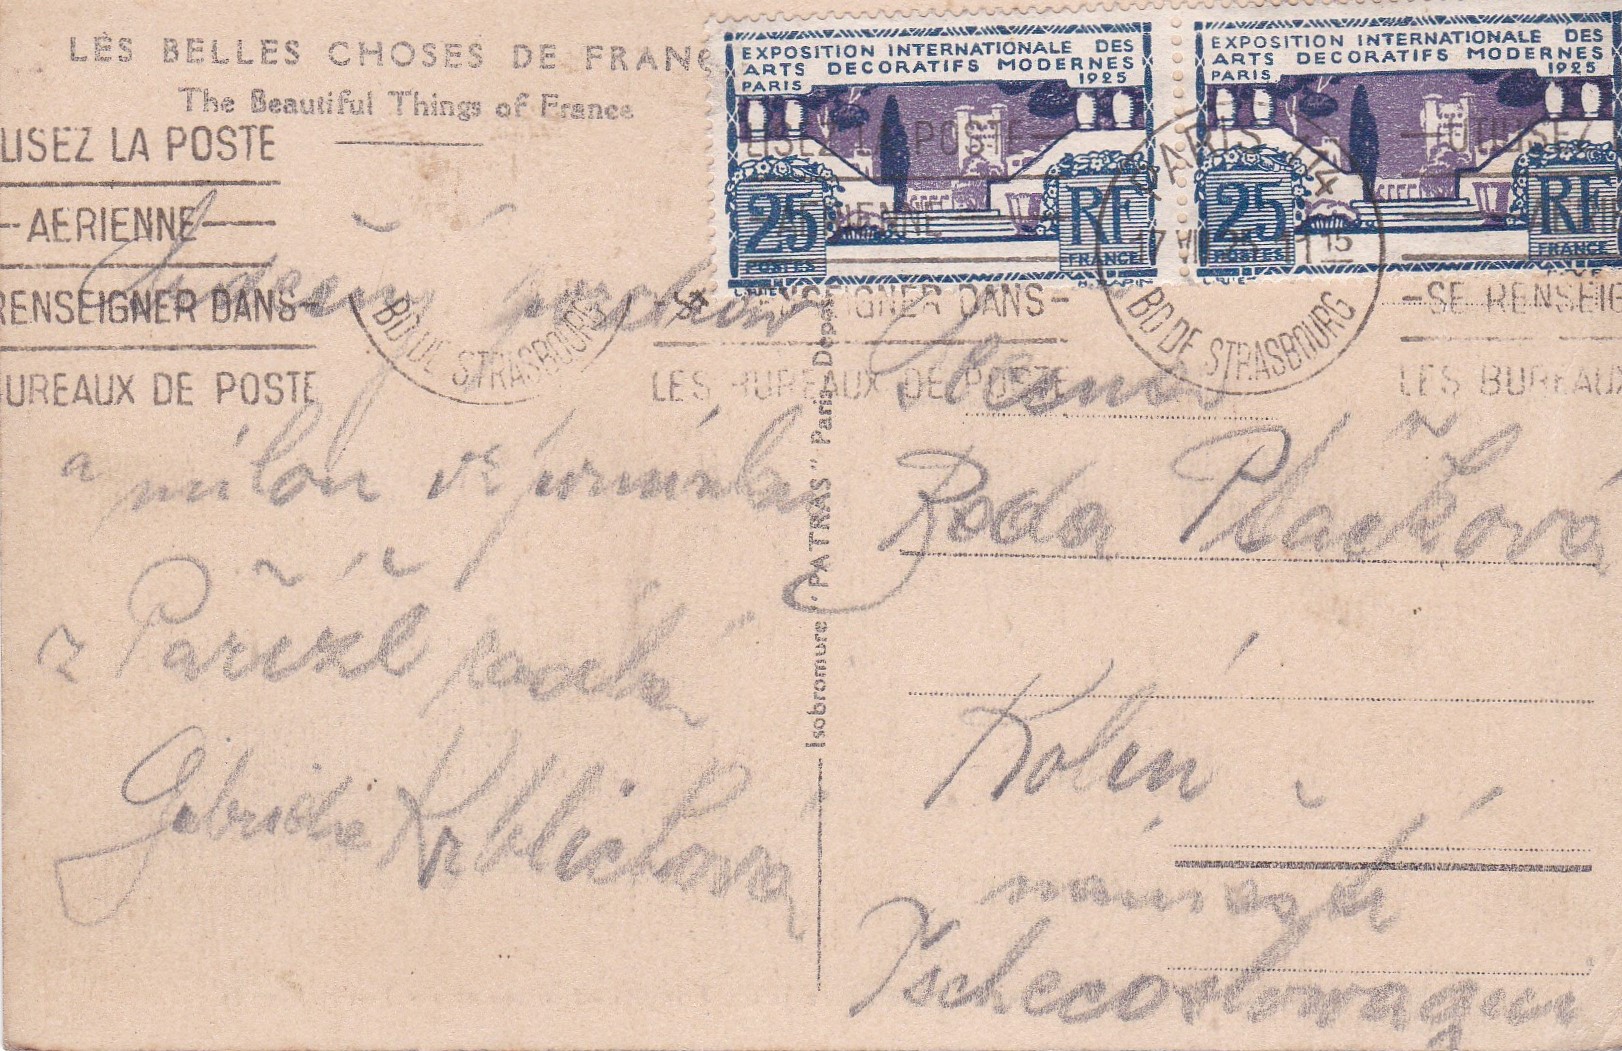 LES BELLES CHOSES DE FRANC
The Beautiful Things of France
LISEZ LA POSTE
AERIENNE
RENSEIGNER DANS
UREAUX DE POSTE
BD DE STRASBOURG
EXPOSITION INTERNATIONALE DES
ARTS DECORATIFS MODERNES
PARIS 1925
25 RF
POSTES FRANCE
EXPOSITION INTERNATIONALE DES
ARTS DECORATIFS MODERNES
PARIS 1925
25 RF
POSTES FRANCE
LISEZ LA POSTE
AERIENNE
SE RENSEIGNER DANS
LES BUREAUX DE POSTE
PARIS 114
17 VII 25 11 15
BD DE STRASBOURG
UTILISEZ
SE RENSEIG
LES BUREAUX
Srdečný pozdrav
a
z Paříže
Krblichová
Isobromure "PATRAS" Paris Déposé
Slečna
Plačková
Kolín
nám
Tschecoslowaquei